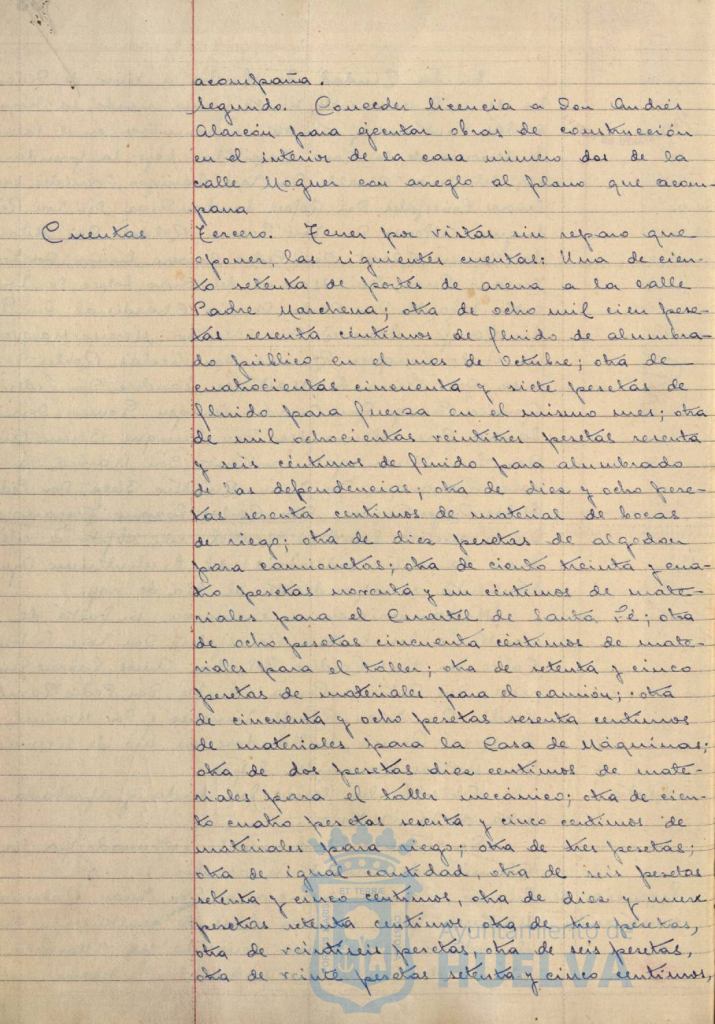 acompaña.
Segundo. Conceder licencia a Don Andrés
Alarcón para ejecutar obras de construcción
en el interior de la casa número dos de la
calle Moguer con arreglo al plano que acom-
paña
Cuentas
Tercero. Tener por vistas sin reparo que
oponer, las siguientes cuentas: Una de cien-
to setenta de portes de arena a la calle
Padre Marchena; otra de ocho mil cien pese-
tas sesenta céntimos de fluido de alumbra-
do público en el mes de Octubre; otra de
cuatrocientas cincuenta y siete pesetas de
fluido para fuerza en el mismo mes; otra
de mil ochocientas veintitres pesetas sesenta
y seis céntimos de fluido para alumbrado
de las dependencias; otra de diez y ocho pese-
tas sesenta centimos de material de bocas
de riego; otra de diez pesetas de algodon
para camionetas; otra de ciento treinta y cua-
tro pesetas noventa y un céntimos de mate-
riales para el Cuartel de Santa Fé; otra
de ocho pesetas cincuenta céntimos de mate-
riales para el taller; otra de setenta y cinco
pesetas de materiales para el camión; otra
de cincuenta y ocho pesetas sesenta centimos
de materiales para la Casa de Máquinas;
otra de dos pesetas diez centimos de mate-
riales para el taller mecánico; otra de cien-
to cuatro pesetas sesenta y cinco centimos de
materiales para riego; otra de tres pesetas;
otra de igual cantidad, otra de seis pesetas
setenta y cinco centimos, otra de diez y nueve
pesetas setenta centimos, otra de tres pesetas,
otra de veintiseis pesetas, otra de seis pesetas,
otra de veinte pesetas setenta y cinco centimos,
Ayuntamiento de
HUELVA